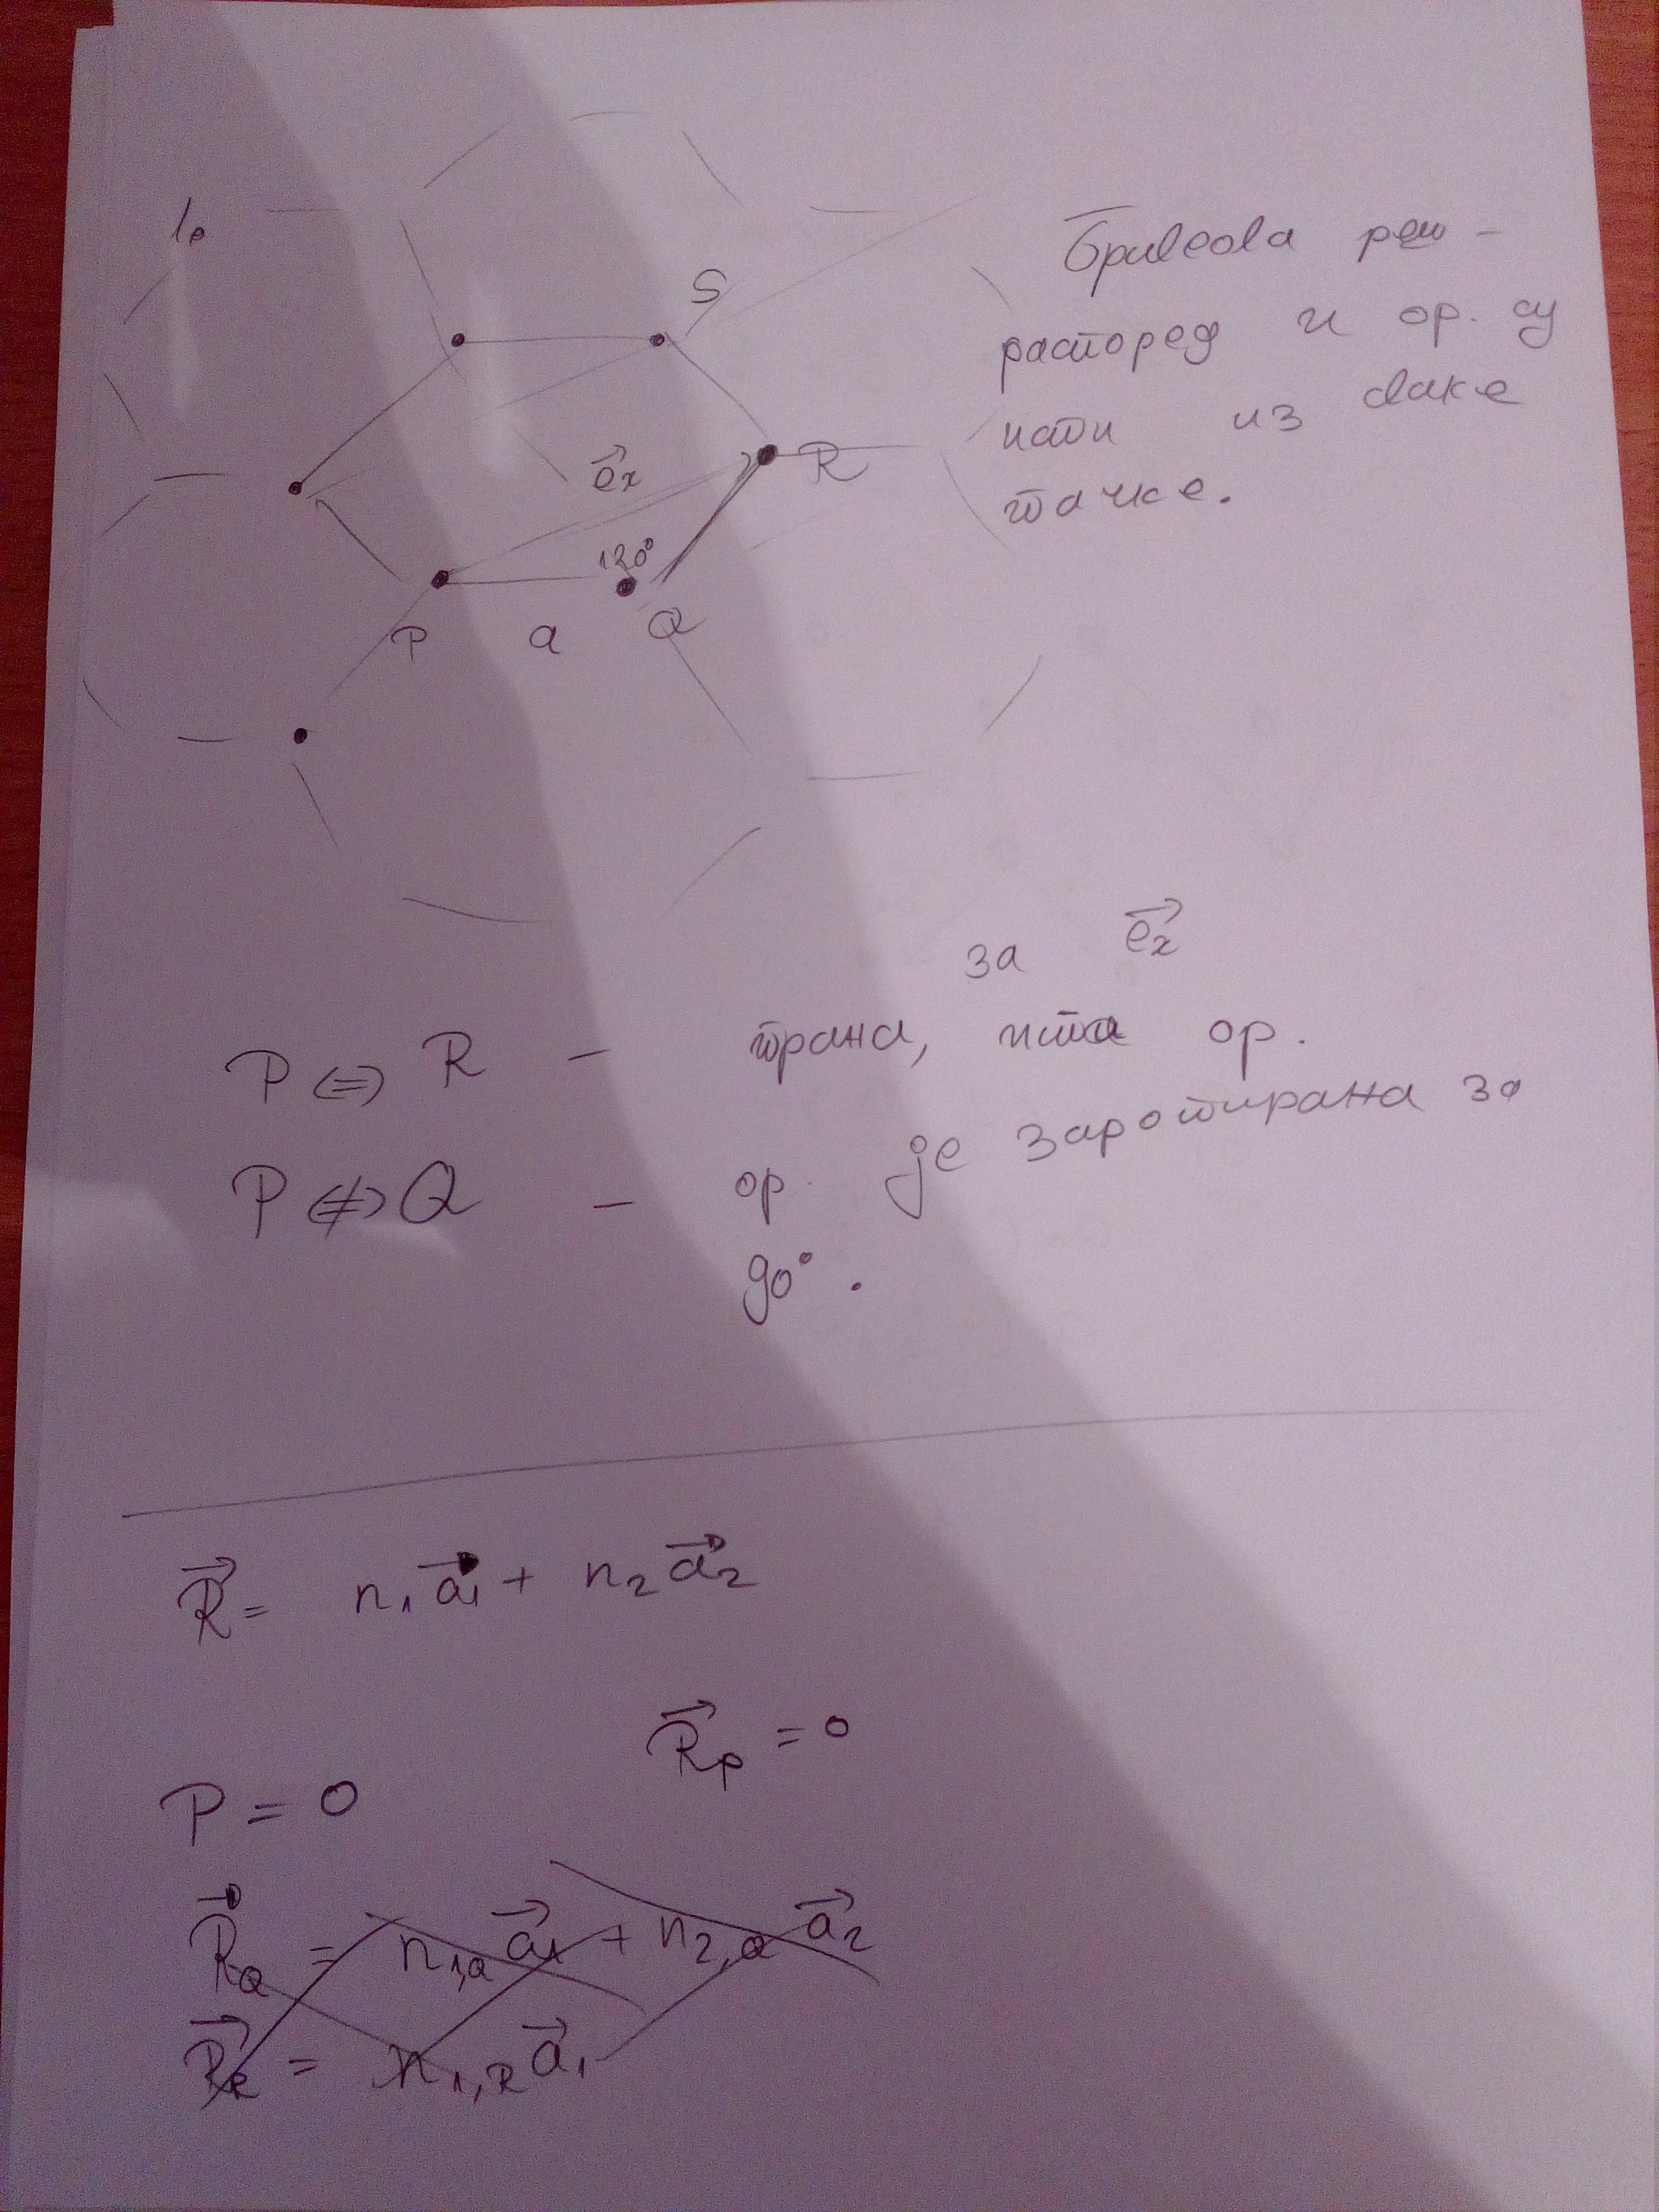 1.
S
R
e⃗x
120°
P a Q
Бравеова реш -
распоред и ор. су
исти из сваке
тачке.
за e⃗x
P ⇔ R - транa, иста ор.
P ⇎ Q - ор. је заротирана за
90°.
R⃗ = n₁a⃗₁ + n₂a⃗₂
R⃗p = 0
P = 0
R⃗Q = n₁,Q a⃗₁ + n₂,Q a⃗₂
R⃗R = n₁,R a⃗₁